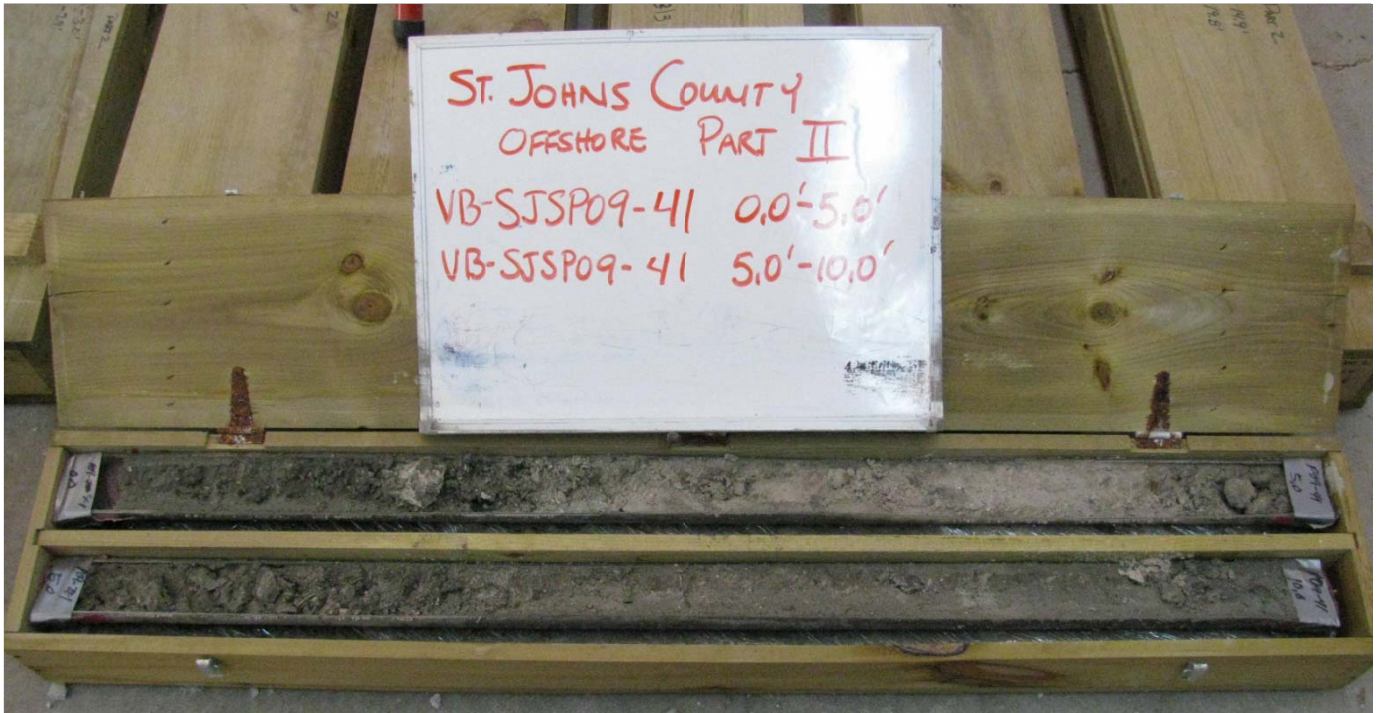 ST. JOHNS COUNTY
OFFSHORE PART II
VB-SJSP09-41 0.0'-5.0'
VB-SJSP09-41 5.0'-10.0'
0.0
5.0
5.0
10.0